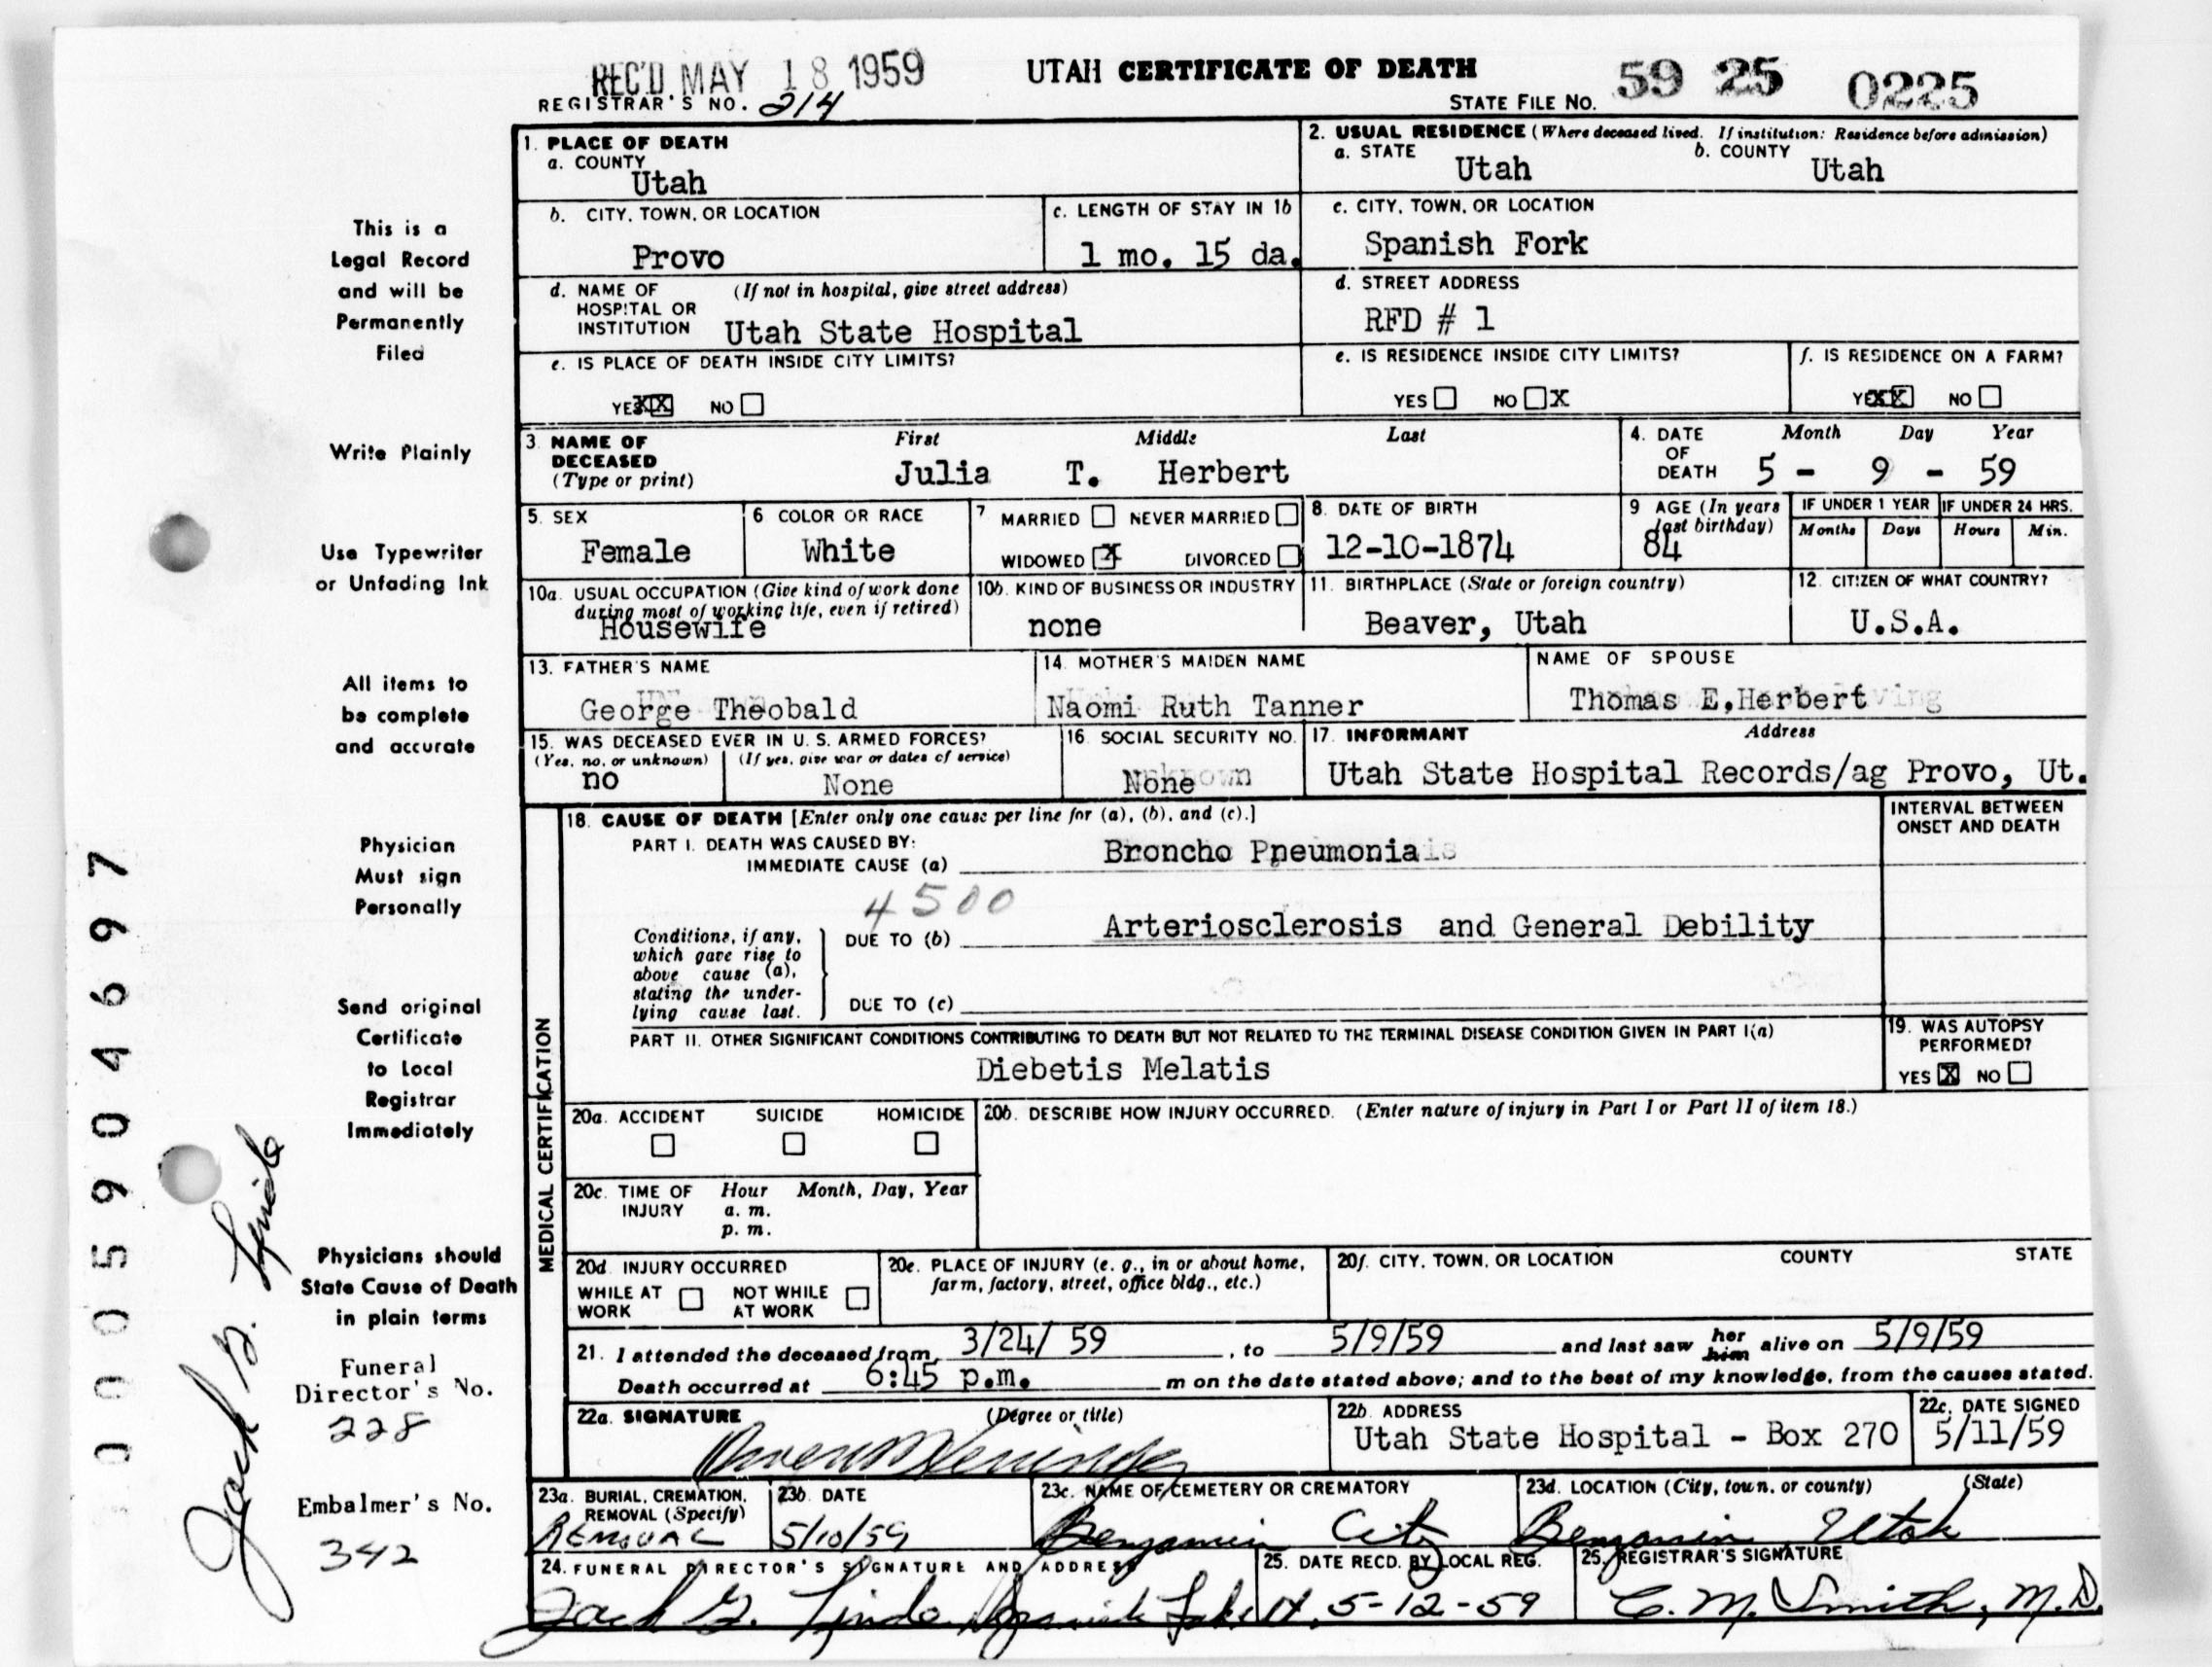 REC'D MAY 18 1959
UTAH CERTIFICATE OF DEATH
59 25 0225
REGISTRAR'S NO. 214
STATE FILE NO.
1. PLACE OF DEATH
a. COUNTY
Utah
2. USUAL RESIDENCE (Where deceased lived. If institution: Residence before admission)
a. STATE
Utah
b. COUNTY
Utah
b. CITY, TOWN, OR LOCATION
Provo
c. LENGTH OF STAY IN 1b
1 mo. 15 da.
c. CITY, TOWN, OR LOCATION
Spanish Fork
d. NAME OF HOSPITAL OR INSTITUTION
(If not in hospital, give street address)
Utah State Hospital
d. STREET ADDRESS
RFD # 1
e. IS PLACE OF DEATH INSIDE CITY LIMITS?
YES XX NO
e. IS RESIDENCE INSIDE CITY LIMITS?
YES NO X
f. IS RESIDENCE ON A FARM?
YES XX NO
3. NAME OF DECEASED
(Type or print)
First Middle Last
Julia T. Herbert
4. DATE OF DEATH
Month Day Year
5 - 9 - 59
5. SEX
Female
6 COLOR OR RACE
White
7 MARRIED NEVER MARRIED
WIDOWED X DIVORCED
8. DATE OF BIRTH
12-10-1874
9 AGE (In years last birthday)
84
IF UNDER 1 YEAR
Months Days
IF UNDER 24 HRS.
Hours Min.
10a. USUAL OCCUPATION (Give kind of work done
during most of working life, even if retired)
Housewife
10b. KIND OF BUSINESS OR INDUSTRY
none
11. BIRTHPLACE (State or foreign country)
Beaver, Utah
12. CITIZEN OF WHAT COUNTRY?
U.S.A.
13. FATHER'S NAME
George Theobald
14. MOTHER'S MAIDEN NAME
Naomi Ruth Tanner
NAME OF SPOUSE
Thomas E,Herbert
15. WAS DECEASED EVER IN U. S. ARMED FORCES?
(Yes, no, or unknown) (If yes, give war or dates of service)
no None
16. SOCIAL SECURITY NO.
None
17. INFORMANT Address
Utah State Hospital Records/ag Provo, Ut.
MEDICAL CERTIFICATION
18. CAUSE OF DEATH [Enter only one cause per line for (a), (b), and (c).]
INTERVAL BETWEEN
ONSET AND DEATH
PART I. DEATH WAS CAUSED BY:
IMMEDIATE CAUSE (a) Broncho Pneumonia
4500
Conditions, if any,
which gave rise to
above cause (a),
stating the under-
lying cause last.
DUE TO (b) Arteriosclerosis and General Debility
DUE TO (c)
PART II. OTHER SIGNIFICANT CONDITIONS CONTRIBUTING TO DEATH BUT NOT RELATED TO THE TERMINAL DISEASE CONDITION GIVEN IN PART I(a)
Diebetis Melatis
19. WAS AUTOPSY
PERFORMED?
YES X NO
20a. ACCIDENT SUICIDE HOMICIDE
20b. DESCRIBE HOW INJURY OCCURRED. (Enter nature of injury in Part I or Part II of item 18.)
20c. TIME OF INJURY
Hour Month, Day, Year
a. m.
p. m.
20d. INJURY OCCURRED
WHILE AT WORK NOT WHILE AT WORK
20e. PLACE OF INJURY (e. g., in or about home,
farm, factory, street, office bldg., etc.)
20f. CITY, TOWN, OR LOCATION COUNTY STATE
21. I attended the deceased from 3/24/ 59, to 5/9/59 and last saw her him alive on 5/9/59
Death occurred at 6:45 p.m. m on the date stated above; and to the best of my knowledge, from the causes stated.
22a. SIGNATURE (Degree or title)
22b. ADDRESS
Utah State Hospital - Box 270
22c. DATE SIGNED
5/11/59
23a. BURIAL, CREMATION,
REMOVAL (Specify)
REMOVAL
23b. DATE
5/10/59
23c. NAME OF CEMETERY OR CREMATORY
Benjamin City
23d. LOCATION (City, town, or county) (State)
Benjamin Utah
24. FUNERAL DIRECTOR'S SIGNATURE AND ADDRESS
Jack G.
25. DATE RECD. BY LOCAL REG.
5-12-59
25. REGISTRAR'S SIGNATURE
C. M. Smith, M.D.
This is a
Legal Record
and will be
Permanently
Filed
Write Plainly
Use Typewriter
or Unfading Ink
All items to
be complete
and accurate
Physician
Must sign
Personally
Send original
Certificate
to Local
Registrar
Immediately
Physicians should
State Cause of Death
in plain terms
Funeral
Director's No.
228
Embalmer's No.
342
Jack
0005904697